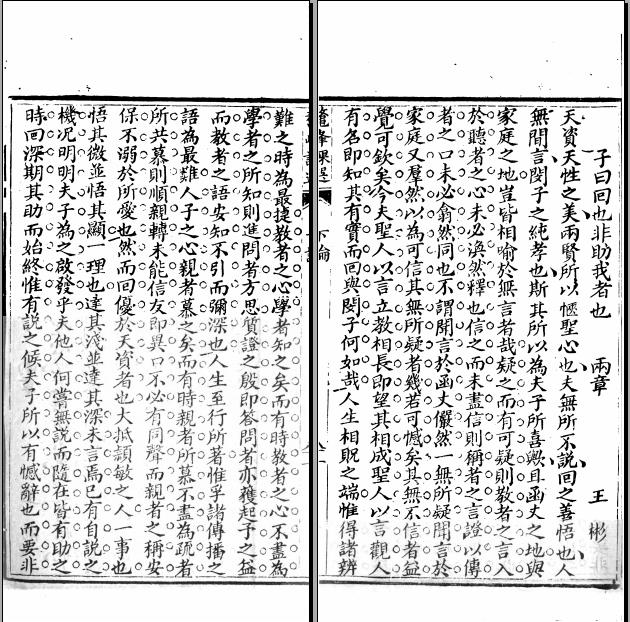 子曰回也非助我者也　兩章　王　彬
天資天性之美兩賢所以愜聖心也夫無所不說回之善悟也人
無間言閔子之純孝也斯其所以為夫子所喜歟且函丈之地與
家庭之地豈皆相喻於無言者哉疑之而有可疑則教者之言入
於聽者之心未必渙然釋也信之而未盡信則稱者之言證以傳
者之口未必翕然同也不謂聞言於函丈儼然一無所疑聞言於
家庭又羣然以為可信其無所疑者幾若可憾矣其無不信者益
覺可欽矣今夫聖人以言立教相長即望其相成聖人以言觀人
有名即知其有實而回與閔子何如哉人生相賑之端惟得諸辨
鼇峰課選　下論
難之時為最捷教者之心學者知之矣而有時教者之心不盡為
學者之所知則進問者方思質證之殷即答問者亦獲起予之益
而教者之語安知不引而彌深也人生至行所著惟孚諸傳播之
語為最難人子之心親者慕之矣而有時親者所慕不盡為疏者
所共慕則順親轉未能信友即異口不必有同聲而親者之稱安
保不溺於所愛也然而回優於天資者也大抵頴敏之人一事也
悟其微並悟其顯一理也達其淺並達其深未言焉已有自說之
機况明明夫子為之啟發乎夫他人何嘗無說而隨在皆有助之
時回深期其助而始終惟有說之候夫子所以有憾辭也而要非